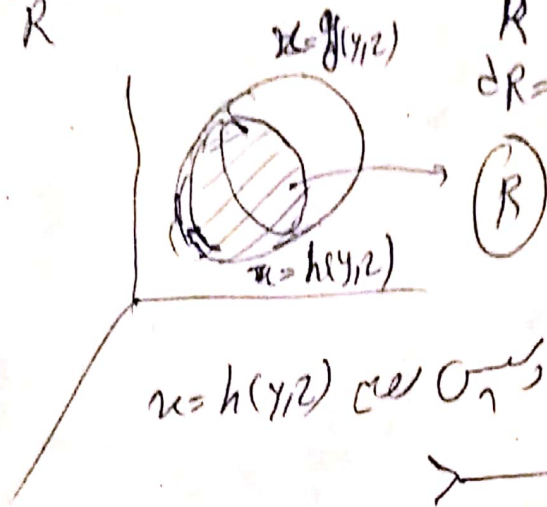 R
R
x=g(y,z)
dR=
R
x=h(y,z)
x=h(y,z)